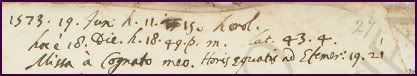 1573. 19. Jun. h. 11. 15. horol.
hoc è 18. Die. h. 18. 49. p. m. Lat. 43. 4.
Missa à Cognato meo. Horis equatis ad Efemer: 19. 21
27